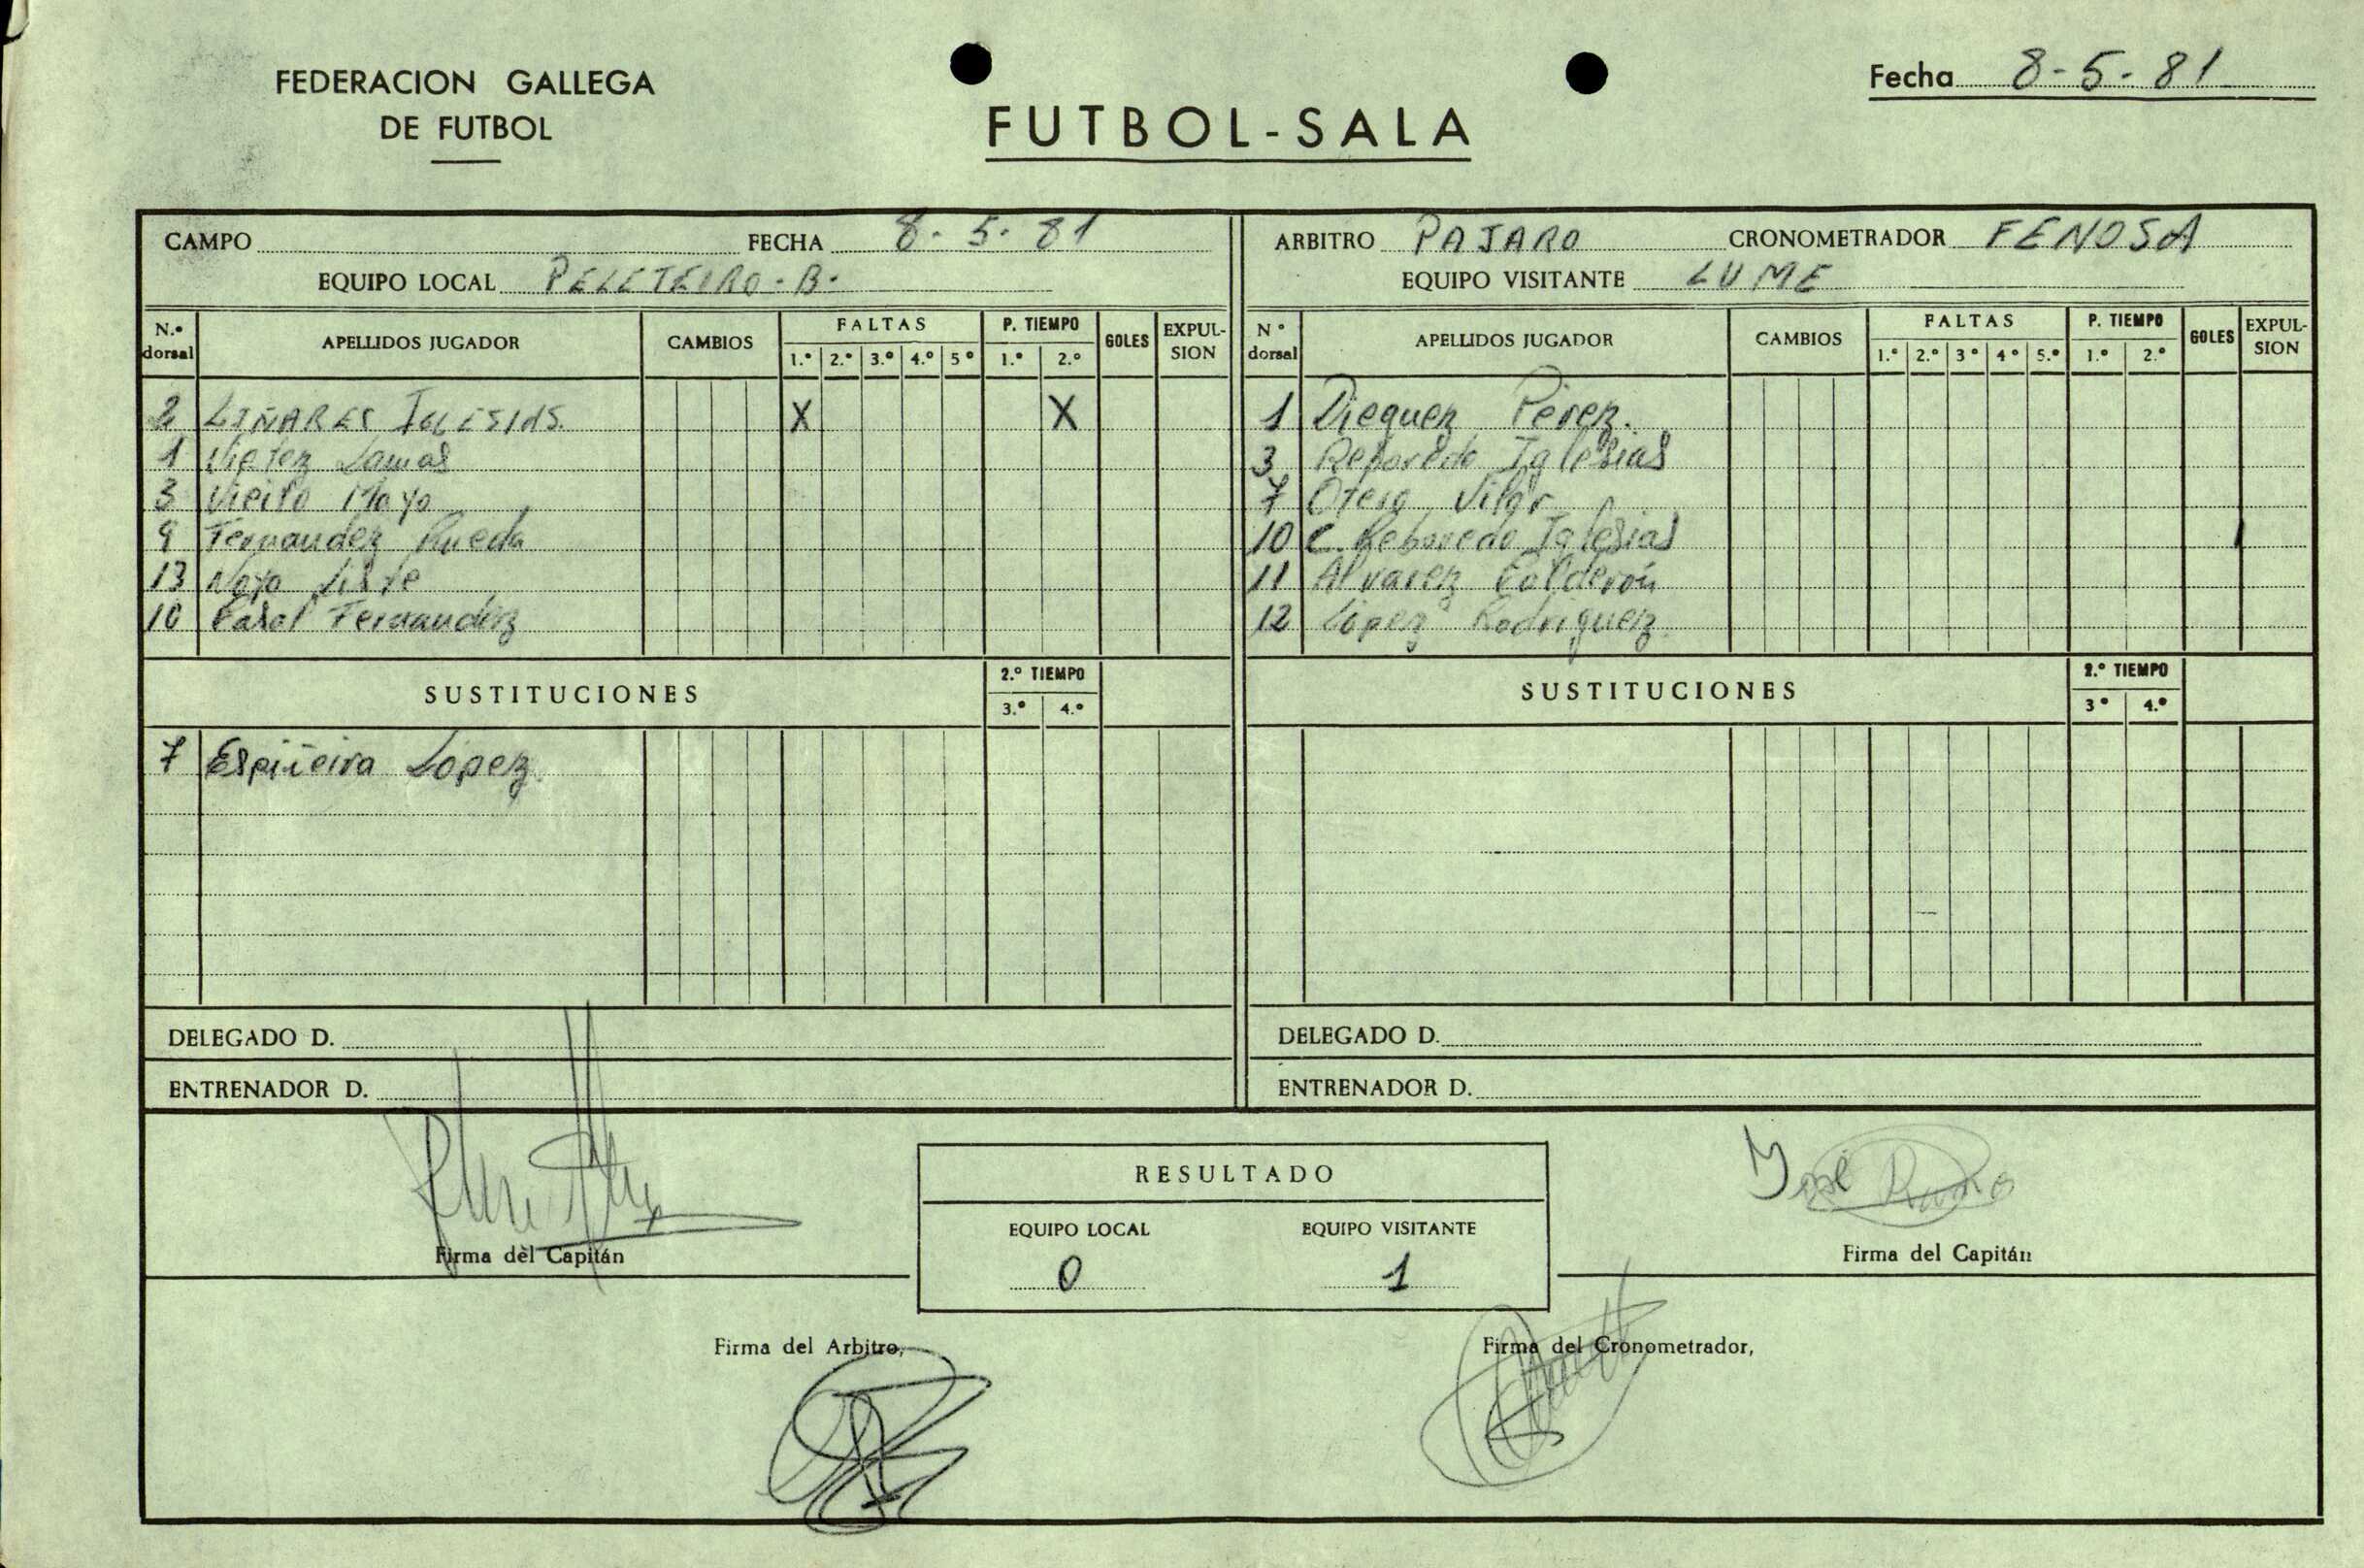 FEDERACION GALLEGA
DE FUTBOL
FUTBOL-SALA
Fecha 8-5-81
CAMPO FECHA 8-5-81
EQUIPO LOCAL PELETEIRO-B-
N.º dorsal APELLIDOS JUGADOR CAMBIOS FALTAS 1.º 2.º 3.º 4.º 5º P. TIEMPO 1.º 2.º GOLES EXPUL-SION
2 LIÑARES IGLESIAS. X X
1 Vieitez Lamas
3 Vieito Mayo
9 Fernandez Rueda
13 Noya Liste
10 Casal Fernandez
SUSTITUCIONES 2.º TIEMPO 3.º 4.º
7 Espiñeira Lopez.
DELEGADO D.
ENTRENADOR D.
ARBITRO PAJARO CRONOMETRADOR FENOSA
EQUIPO VISITANTE LUME
Nº dorsal APELLIDOS JUGADOR CAMBIOS FALTAS 1.º 2.º 3º 4º 5.º P. TIEMPO 1.º 2.º GOLES EXPUL-SION
1 Dieguez Perez.
3 Reboredo Iglesias
7 Otero Vilar
10 C. Reboredo Iglesias 1
11 Alvarez Calderón
12 López Rodriguez
SUSTITUCIONES 2.º TIEMPO 3º 4.º
DELEGADO D.
ENTRENADOR D.
RESULTADO
EQUIPO LOCAL EQUIPO VISITANTE
0 1
Firma del Capitán
José
Firma del Capitán
Firma del Arbitro,
Firma del Cronometrador,